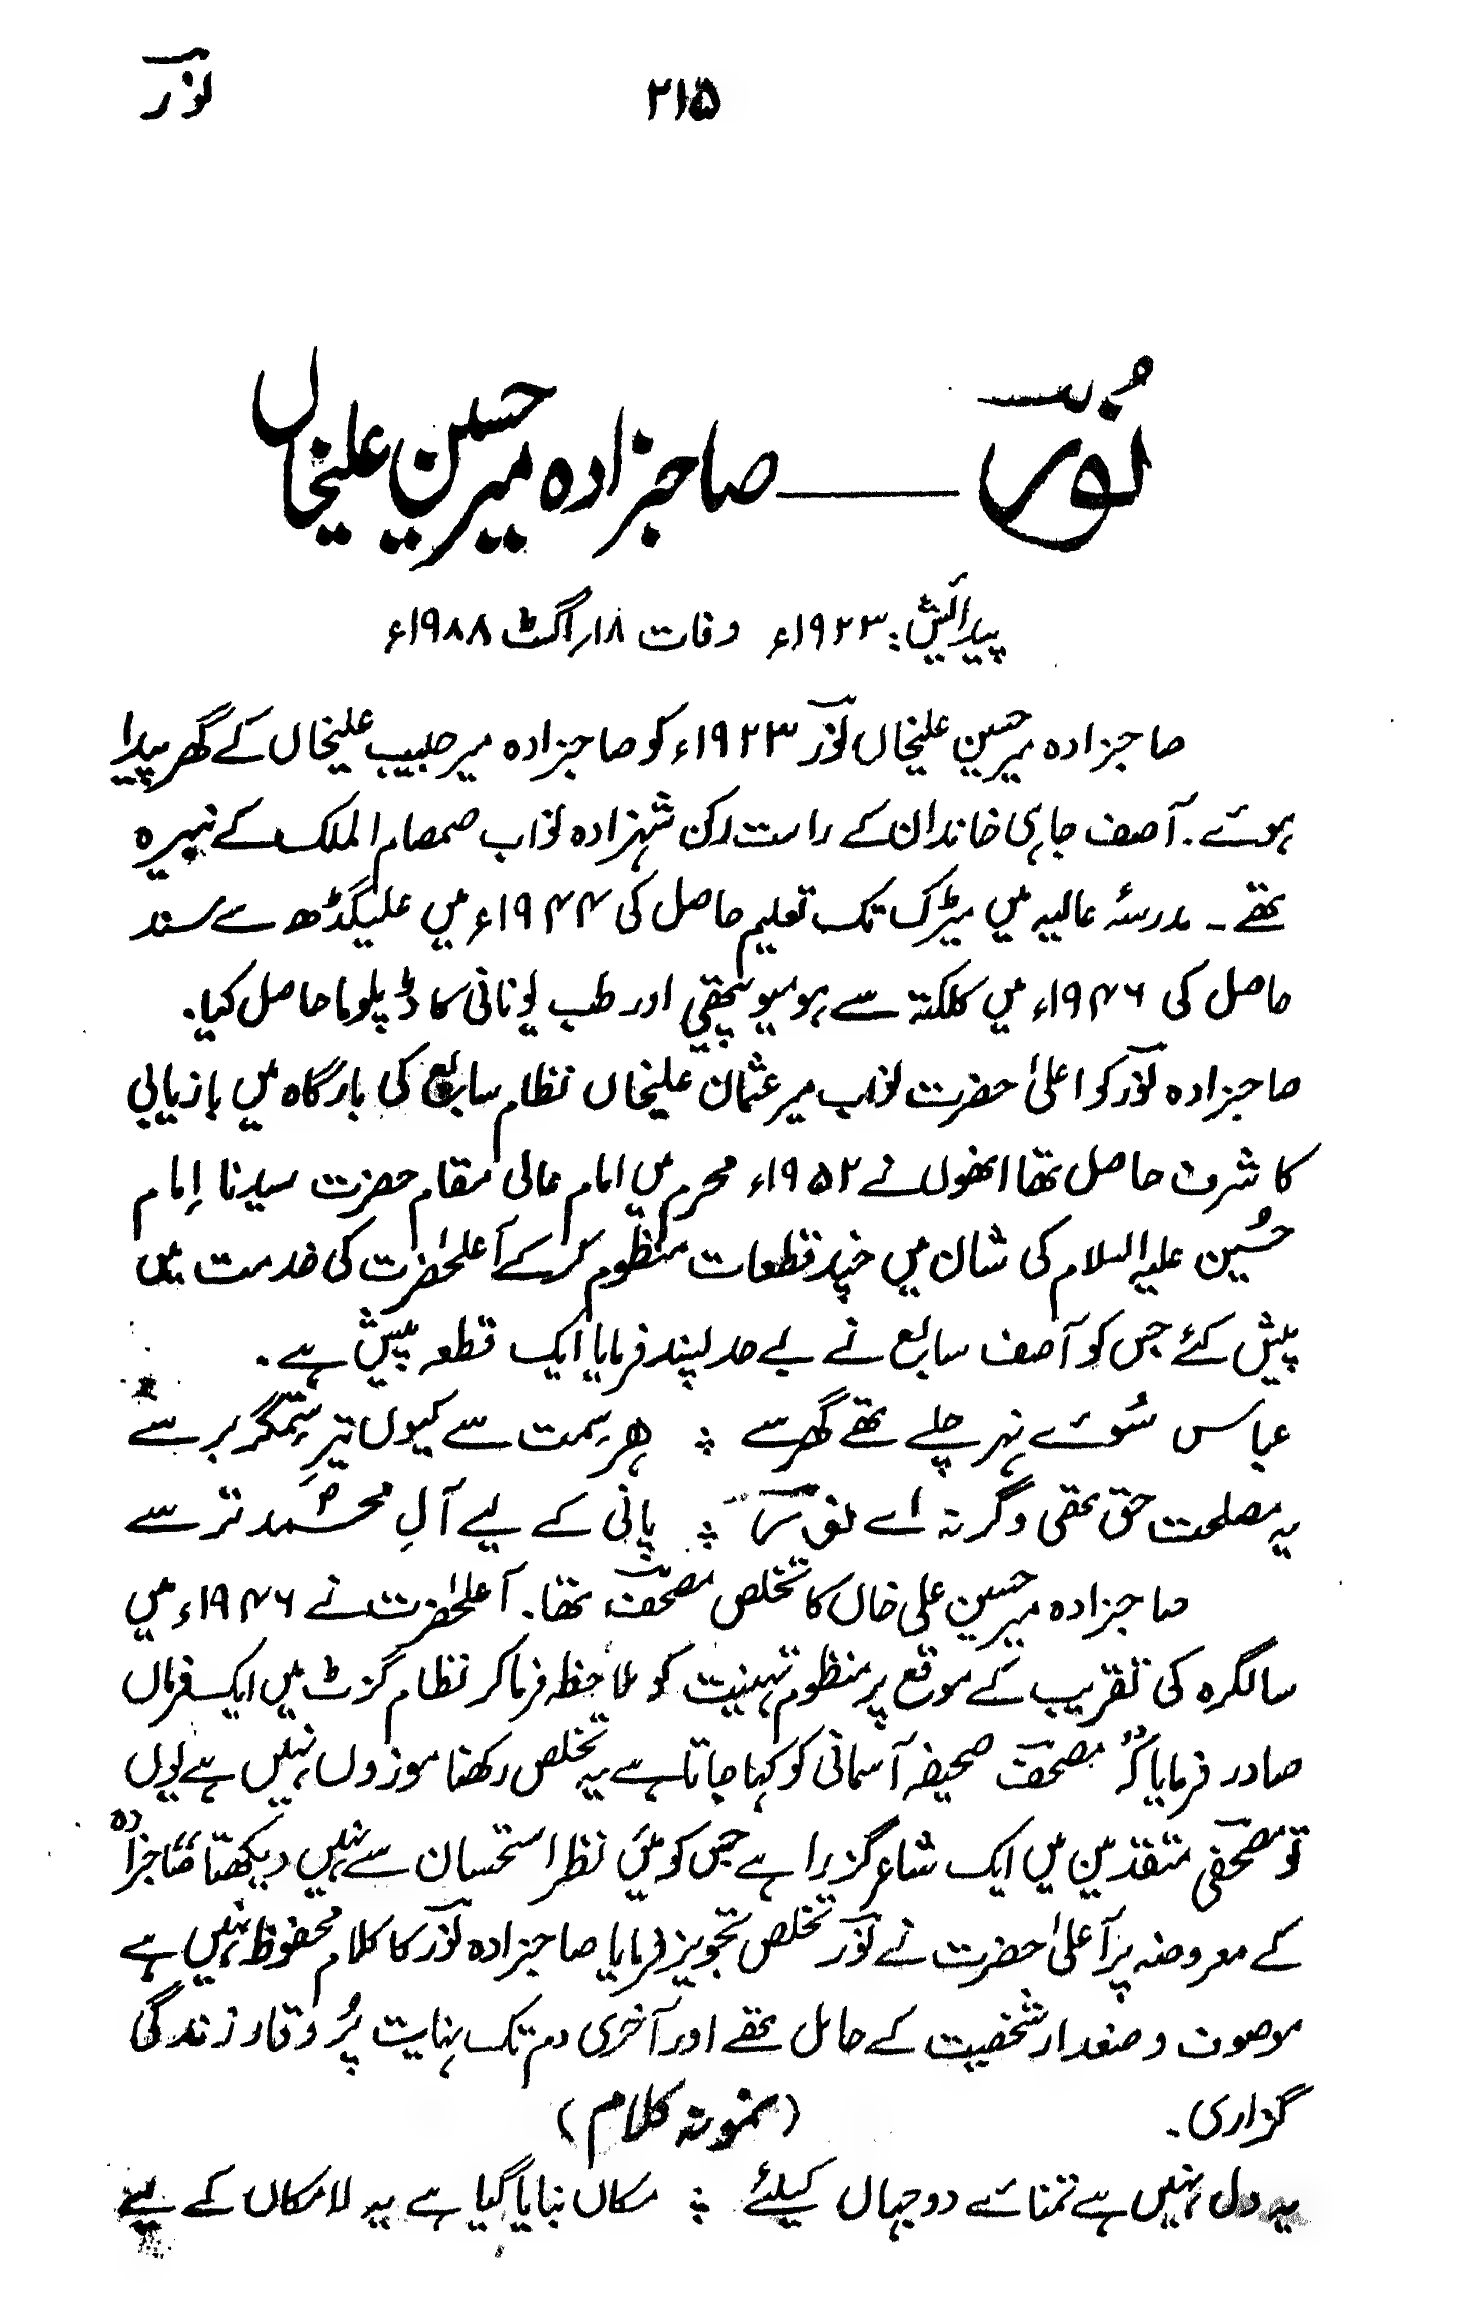 نورؔ
۲۱۵
نُورؔ ــــــ صاحبزادہ میر حسین علیخاں
پیدائش: ۱۹۲۳ء وفات ۱۸؍اگٹ ۱۹۸۸ء
صاحبزادہ میر حسین علیخاں نورؔ ۱۹۲۳ء کو صاحبزادہ میر حبیب علیخاں کے گھر پیدا
ہوئے۔ آصف جاہی خاندان کے راست رکن شہزادہ نواب صمصام الملک کے نبیرہ
تھے۔ مدرسۂ عالیہ میں میٹرک تک تعلیم حاصل کی ۱۹۴۴ء میں علیگڈھ سے سند
حاصل کی ۱۹۴۶ء میں کلکتہ سے ہومیوپیتھی اور طب یونانی کا ڈپلوما حاصل کیا۔
صاحبزادہ نورؔ کو اعلیٰ حضرت نواب میر عثمان علیخاں نظام سابع کی بارگاہ میں باریابی
کا شرف حاصل تھا انھوں نے ۱۹۵۲ء محرم میں امام عالی مقام حضرت سیدنا إمام
حُسین علیہ السلام کی شان میں چند قطعات منظوم کرکے آعلٰحضرت کی خدمت میں
پیش کئے جس کو آصف سابع نے بے حد پسند فرمایا ایک قطعہ پیش ہے۔
عباس سُوئے نہر چلے تھے گھر سے ؛ ہر سِمت سے کیوں تیرِ ستمگر برسے
یہ مصلحت حق تھی وگرنہ اے نورؔ ؛ پانی کے لیے آلِ محمدؐ ترسے
صاحبزادہ میر حسین علی خاں کا تخلص مصحفؔ تھا۔ آعلٰحضرت نے ۱۹۴۶ء میں
سالگرہ کی تقریب کے موقع پر منظوم تہنیت کو ملاحظہ فرماکر نظام گزٹ میں ایک فرماں
صادر فرمایا کہ "مصحفؔ صحیفہ آسمانی کو کہا جاتا ہے یہ تخلص رکھنا موزوں نہیں ہے یوں
تو مصحفیؔ متقدمین میں ایک شاعر گزرا ہے جس کو میں نظر استحسان سے نہیں دیکھتا" صاحبزادہ
کے معروضہ پر آعلیٰ حضرت نے نورؔ تخلص تجویز فرمایا صاحبزادہ نورؔ کا کلام محفوظ نہیں ہے
موصوف وضعدار شخصیت کے حامل تھے اور آخری دم تک نہایت پُر وقار زندگی
گزاری۔
(نمونہ کلام)
یہ دل نہیں ہے تمنائے دوجہاں کیلئے ؛ مکاں بنایا گیا ہے یہ لامکاں کے لیے